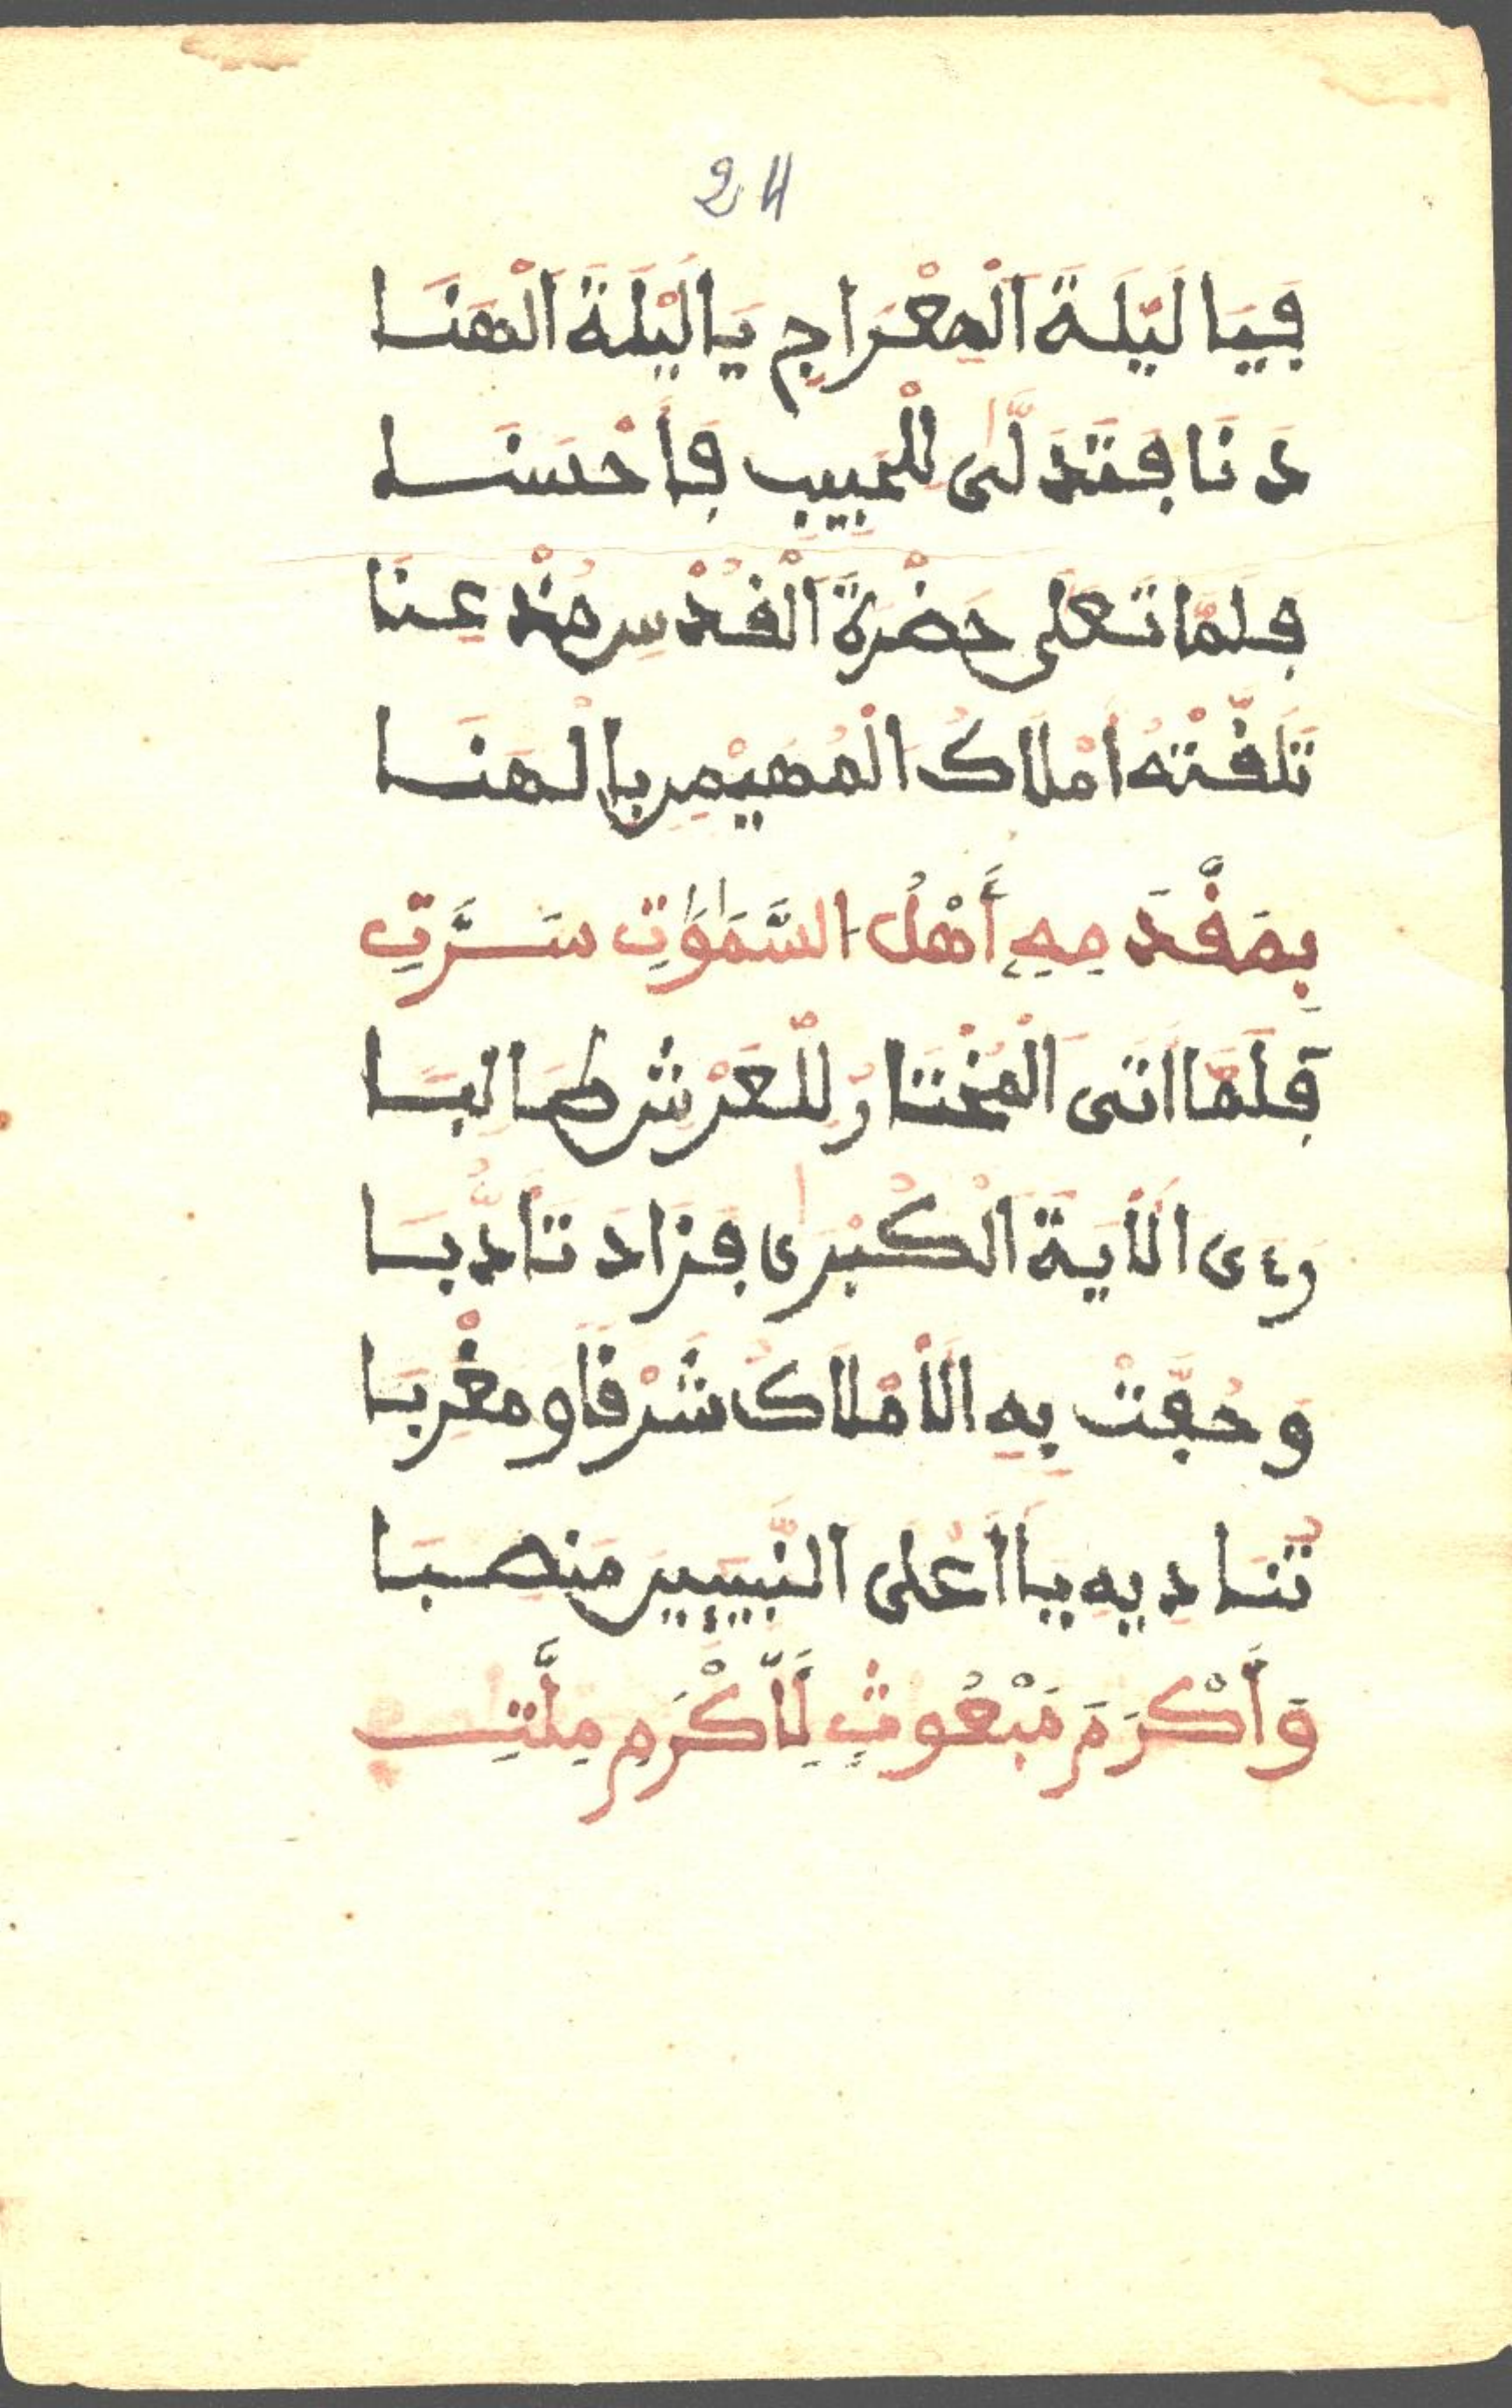 24
فَيَا لَيْلَةَ الْمِعْرَاجِ يَا لَيْلَةَ الْهَنَا
دَنَا فَتَدَلَّى لِلْحَبِيبِ فَأَحْسَنَا
فلمّا تعلى حَضْرَةَ الْقُدْسِ مُنْد عِنَا
تَلَقَّتْهُ أَمْلَاكُ الْمُهَيْمِنِ بِالْهَنَا
بِمَقْدَمِهِ أَهْلُ السَّمَوَٰتِ سَرَّتِ
فَلَمَّا اتَى الْمُخْتَارُ لِلْعَرْشِ طَالِبَا
رءى الْأَيَةَ الْكُبْرَى فَزَادَ تَأَدُّبَا
وَحُفَّتْ بِهِ الْأَمْلَاكُ شَرْقًا وَمَغْرِبَا
تُنَادِيهِ يَا أَعْلَى النَّبِيِّينَ مَنصِبَا
وَأَكْرَمَ مَبْعُوثٍ لِأَكْرَمِ مِلَّتِ